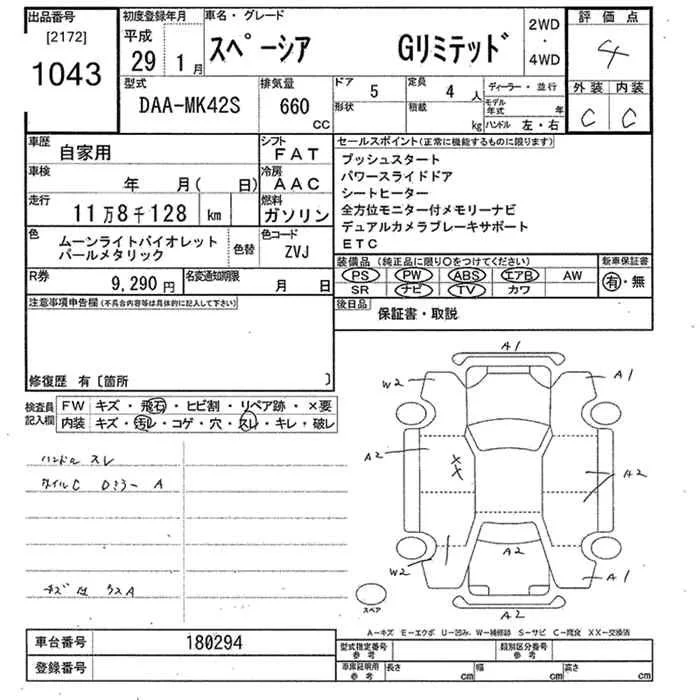 出品番号
[2172]
1043
初度登録年月
平成
29 1月
車名・グレード
スペーシア Gリミテッド
2WD
・
4WD
評価点
4
型式
DAA-MK42S
排気量
660
cc
ドア
5
定員
4 人
ディーラー・並行
形状
積載
kg
モデル年式 年
ハンドル 左・右
外装 内装
C C
車歴
自家用
シフト
FAT
車検
年 月( 日)
冷房
AAC
走行
11万8千128 km
燃料
ガソリン
色
ムーンライトバイオレット
パールメタリック
色替
色コード
ZVJ
R券
9,290 円
名変通知期限
月 日
セールスポイント(正常に機能するものに限ります)
プッシュスタート
パワースライドドア
シートヒーター
全方位モニター付メモリーナビ
デュアルカメラブレーキサポート
ETC
装備品 (純正品に限り○をつけてください)
PS PW ABS エアB AW
SR ナビ TV カワ
新車保証書
有・無
後日品
保証書・取説
注意事項申告欄(不具合内容等は具体的に記入して下さい)
修復歴 有〔箇所 〕
検査員
記入欄
FW キズ・飛石・ヒビ割・リペア跡・×要
内装 キズ・汚レ・コゲ・穴・スレ・キレ・破レ
ハンドル スレ
タイルC Dきラー A
キズ 凹 ウスA
A1
W2
A1
A2
××
A2
W2
A2
A1
A2
スペア
A-キズ E-エクボ U-凹み、W-補修跡 S-サビ C-腐食 XX-交換済
車台番号
180294
登録番号
型式指定番号
参考
類別区分番号
参考
車庫証明用
参考
長さ cm
幅 cm
高さ cm